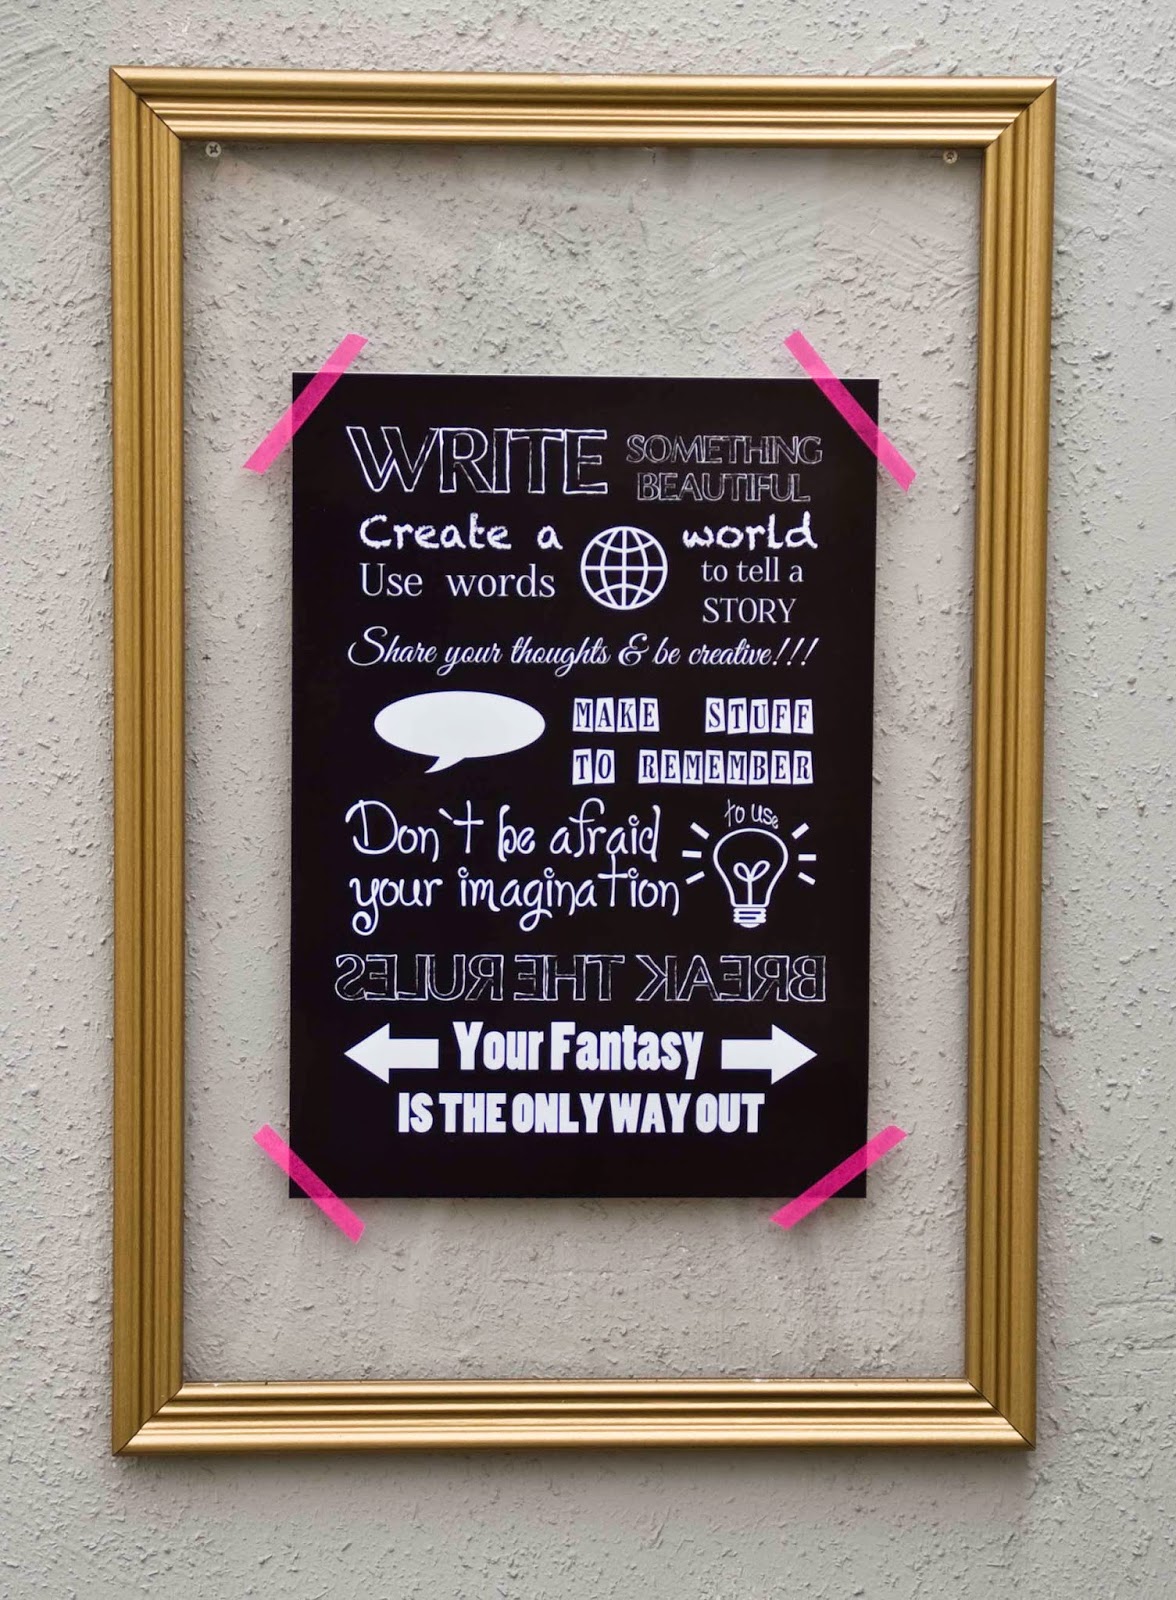 WRITE SOMETHING
BEAUTIFUL
Create a world
Use words to tell a
STORY
Share your thoughts & be creative!!!
MAKE STUFF
TO REMEMBER
Don`t be afraid to use
your imagination
BREAK THE RULES
Your Fantasy
IS THE ONLY WAY OUT